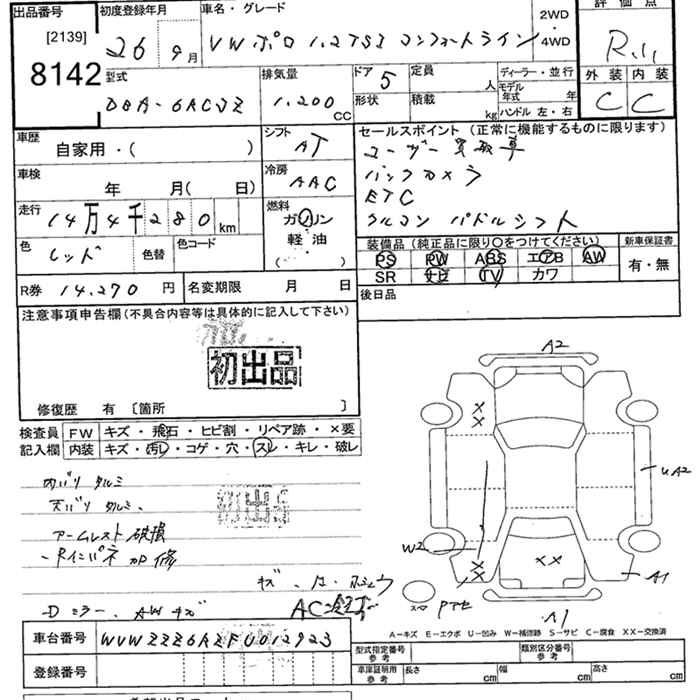 出品番号 初度登録年月 車名・グレード 2WD・4WD 評価点
[2139] 8142
26 9月 VW ポロ 1.2TSI コンフォートライン
型式 排気量 ドア 定員 人 ディーラー・並行
1.200 CC 5 形状 積載 kg モデル年式 年 ハンドル 左・右
外装 内装
C C
車歴 自家用・( ) シフト AT
セールスポイント (正常に機能するものに限ります)
ユーザー買取車
車検 年 月( 日) 冷房 AAC
バックカメラ
ETC
走行 14万4千280km 燃料 ガソリン 軽・油 ( )
クルコン パドルシフト
色 レッド 色替 色コード
装備品 (純正品に限り○をつけてください) 新車保証書
PS PW ABS エアB AW 有・無
SR ナビ TV カワ
R券 14.270 円 名変期限 月 日
後日品
注意事項申告欄(不具合内容等は具体的に記入して下さい)
初出品
修復歴 有 〔箇所 〕
検査員記入欄 FW キズ・飛石・ヒビ割・リペア跡・×要
内装 キズ・汚レ・コゲ・穴・スレ・キレ・破レ
内バリ タルミ
天バリ タルミ
アームレスト破損
初出品
A2
UA2
W2
A1
A1
A-キズ E-エクボ U-凹み W-補修跡 S-サビ C-腐食 XX-交換済
車台番号 WVWZZZ6AZFU012923
登録番号
型式指定番号 参考 類別区分番号 参考
車庫証明用 参考 長さ cm 幅 cm 高さ cm